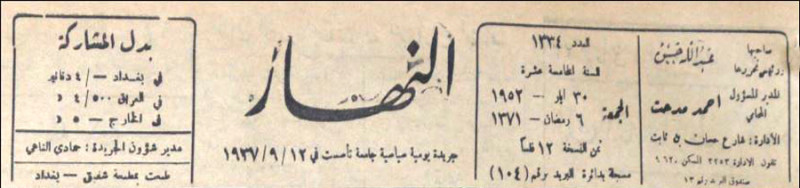 صاحبها
ورئيس تحريرها عبدالله حسن
المدير المسؤول
المحامي احمد مدحت
الادارة : شارع حسان بن ثابت
تلفون الادارة ٢٢٥٣ السكن
صندوق البريد رقم ١٣
العدد ١٣٣٤
السنة الخامسة عشرة
الجمعة
٣٠ ايار — ١٩٥٢
٦ رمضان — ١٣٧١
ثمن النسخة ١٢ فلساً
مسجلة بدائرة البريد برقم (١٠٤)
النهار
جريدة يومية سياسية جامعة تأسست في ١٢/٩/١٩٣٧
بدل المشاركة
في بغداد — /٤ دنانير
في العراق ٤/٥٠٠ د
في الخارج — ٥ د
مدير شؤون الجريدة : حمادي الناهي
طبعت بمطبعة شفيق — بغداد